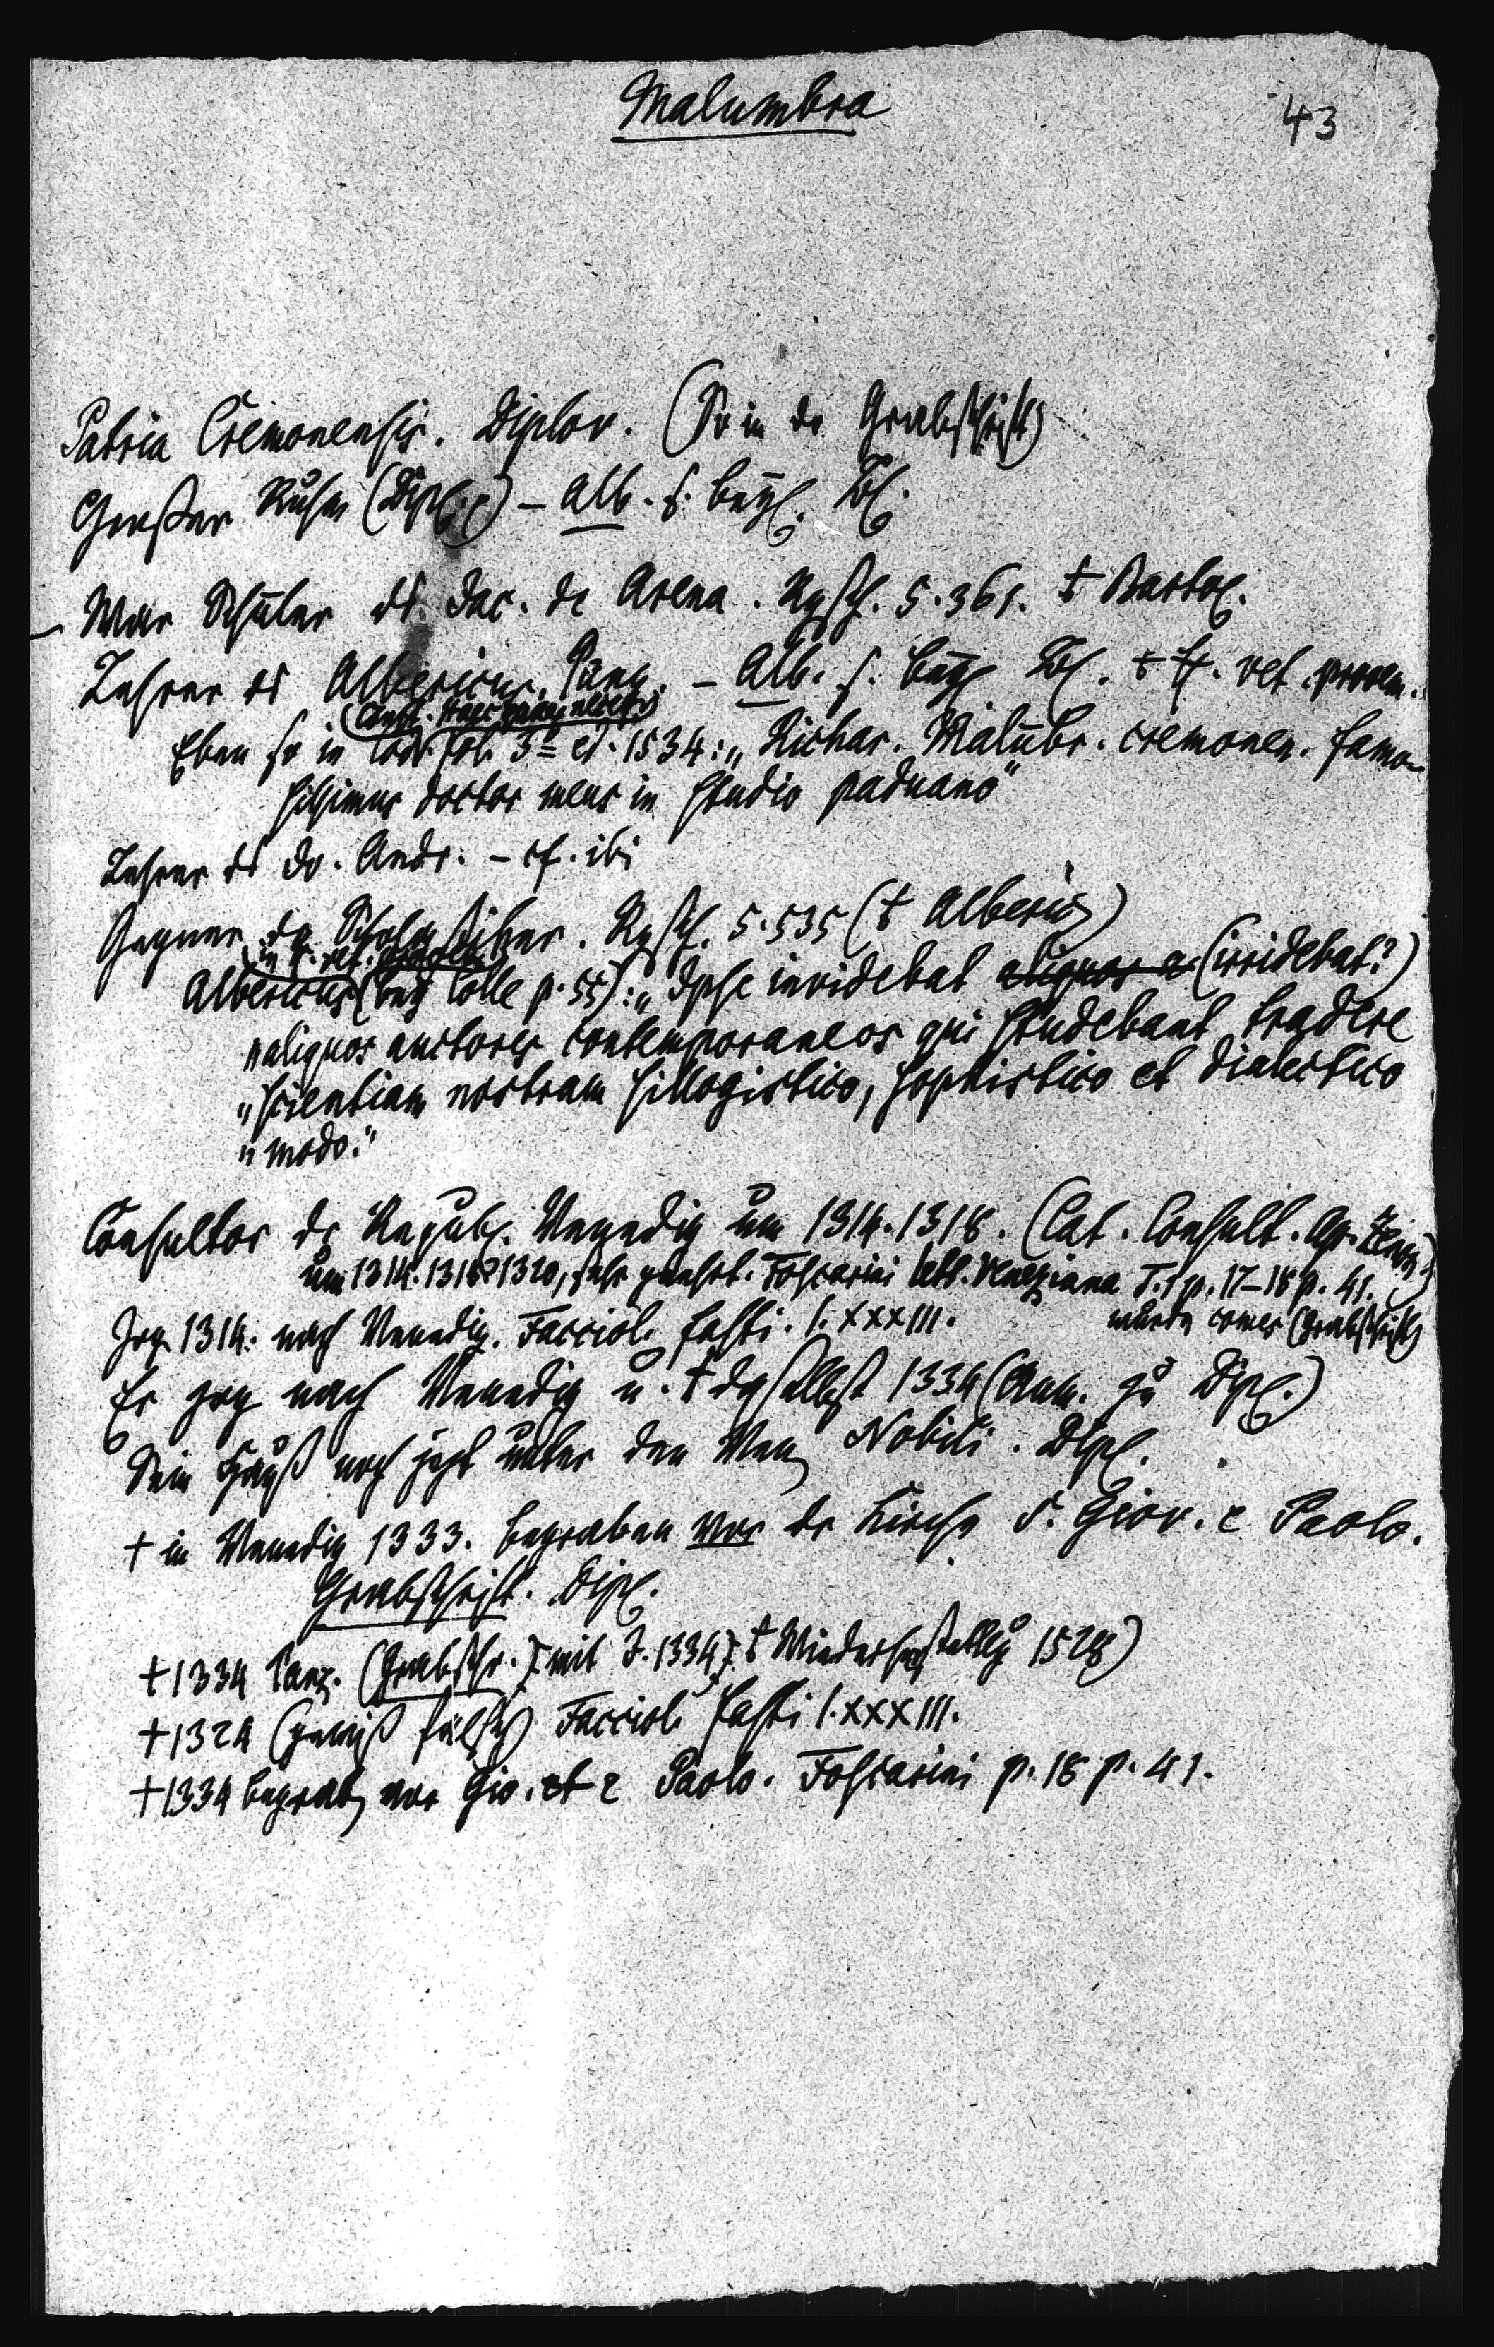 Malumbra
43
Patria Cremonensis. Diplov. (So in der Grabschrift)
Großer Ruhm (Dipl.) – Alb. s. bey
War Schüler des Jac. de Arena. 5. 361. + Bartol.
Lehrer des Albericus. Panz. – Alb. s. bey vet. prooem.
Eben so in Cod. fol. 3 ed. 1534: „Richar. Malūbr. cremonen. famo-
sissimus doctor meus in studio paduano“
Lehrer des Jo. Andr. – cf. ibi
Gegner der 5. 535 (+ Alberic)
Albericus (bey Colle p. 55): „Ipse invidebat aliquos a (irridebat?)
„aliquos auctores contemporaneos qui studebant tradere
„scientiam nostram sillogistico, sophistico et dialectico
„modo.“
Consultor der Republ. Venedig um 1314. 1318. (Cat. Consult. Ap. Zeno)
um 1314. 1318? 1320, sehr geehrt. Foscarini lett. Veneziana T. 1 p. 17–18 p. 41.
Zog 1314. nach Venedig. Facciol. Fasti. 1. XXXIII.
comes (Grabschrift)
Er zog nach Venedig u. + daselbst 1334 (Anm. zu Dipl.)
Sein Haus noch jetzt unter den Ven. Nobili. Dipl.
+ in Venedig 1333. begraben vor der Kirche S. Giov. e Paolo.
Grabschrift. Dipl.
+ 1334 Panz. (Grabschr.) mit J. 1334 + Wiederherstellg 1528)
+ 1324 (gewiß falsch) Facciol. Fasti 1. XXXIII.
+ 1334 begrab. vor Gio. et e Paolo. Foscarini p. 18 p. 41.